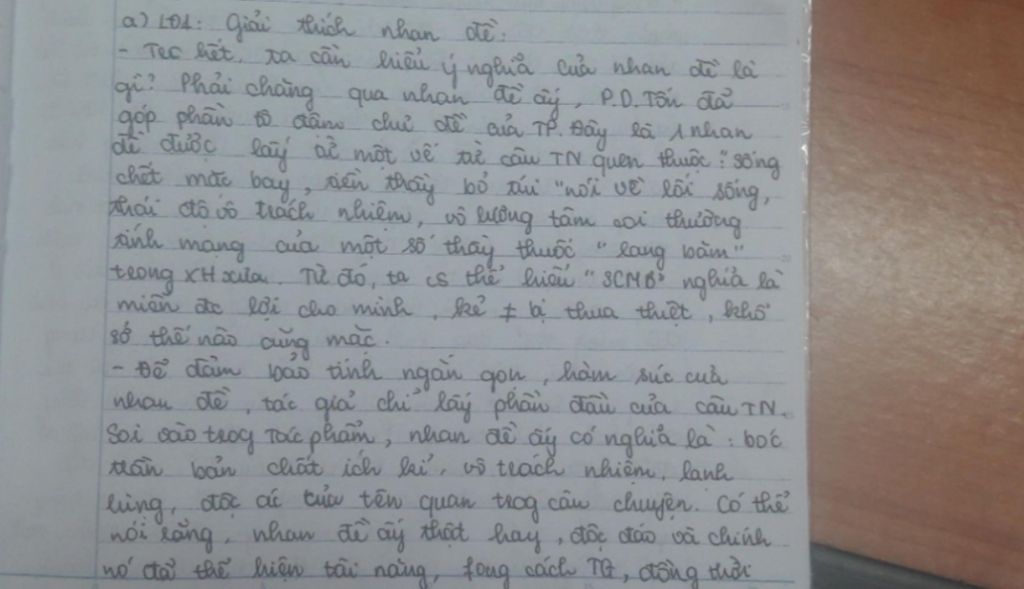 a) LĐ1: Giải thích nhan đề:
- Trc hết, ta cần hiểu ý nghĩa của nhan đề là
gì? Phải chăng qua nhan đề ấy, P.D.Tốn đã
góp phần tô đậm chủ đề của TP. Đây là 1 nhan
đề được lấy từ một vế từ câu TN quen thuộc: "sống
chết mặc bay, tiền thầy bỏ túi" nói về lối sống,
thái độ vô trách nhiệm, vô lương tâm coi thường
tính mạng của một số thầy thuốc "lang băm"
trong XH xưa. Từ đó, ta có thể hiểu "SCMB" nghĩa là
miễn đc lợi cho mình, kẻ ≠ bị thua thiệt, khổ
sở thế nào cũng mặc.
- Để đảm bảo tính ngắn gọn, hàm súc của
nhan đề, tác giả chỉ lấy phần đầu của câu TN.
Soi vào trog Tác phẩm, nhan đề ấy có nghĩa là: bóc
trần bản chất ích kỉ, vô trách nhiệm, lạnh
lùng, độc ác của tên quan trog câu chuyện. Có thể
nói rằng, nhan đề ấy thật hay, độc đáo và chính
nó đã thể hiện tài năng, fong cách TG, đồng thời